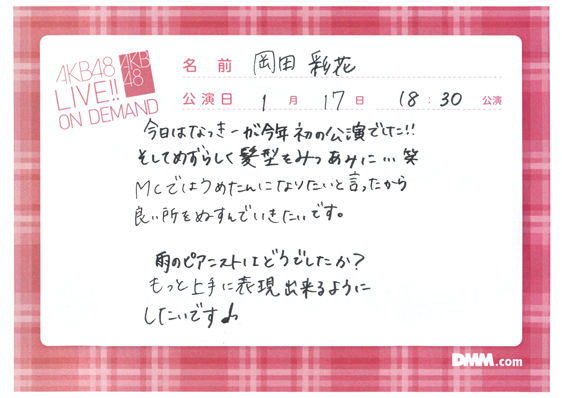 AKB48
LIVE!!
ON DEMAND
AKB
48
名前 岡田 彩花
公演日 1月17日 18:30 公演
今日はなっきーが今年初の公演でした!!
そしてめずらしく髪型をみつあみに… 笑
MCではうめたんになりたいと言ったから
良い所をぬすんでいきたいです。
雨のピアニストはどうでしたか?
もっと上手に表現出来るように
したいです♪
DMM.com